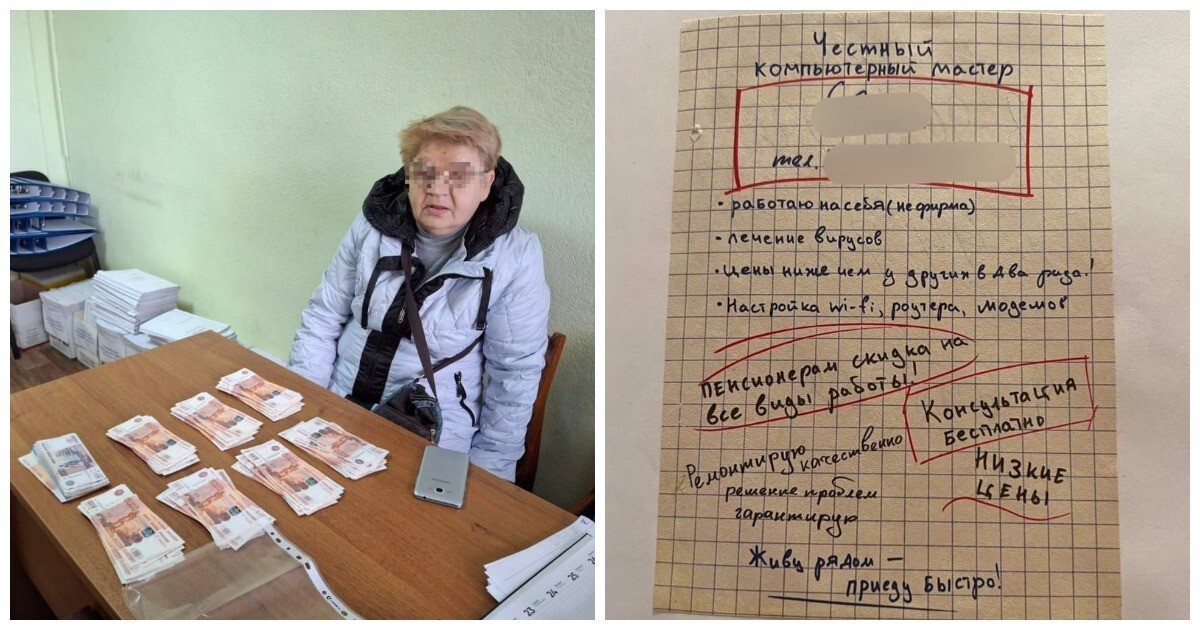 Честный
компьютерный мастер
тел.
• работаю на себя (не фирма)
• лечение вирусов
• Цены ниже чем у других в два раза!
• Настройка wi-fi, роутера, модемов
ПЕНСИОНЕРАМ скидка на
все виды работы!
Консультация
бесплатно
НИЗКИЕ
ЦЕНЫ
Ремонтирую качественно
решение проблем
гарантирую
Живу рядом —
приеду быстро!
23
24
25
26